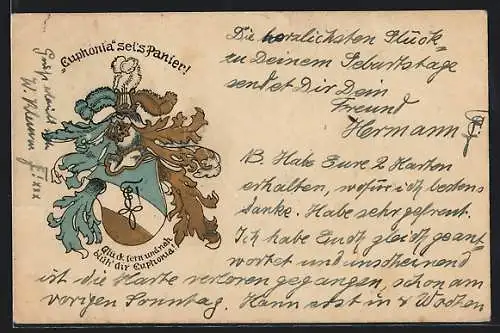 "Euphonia" sei's Panier!
Glück fern und nah
blüh' dir Euphonia!
Die herzlichsten Glück-
zu Deinem Geburtstage
sendet Dir Dein
Freund
Hermann
NB. Habe Eure 2 Karten
erhalten, wofür ich bestens
danke. Habe sehr gefreut.
Ich habe Euch gleich geant
wortet und anscheinend
ist die Karte verloren gegangen, schon am
vorigen Sonntag. Kann erst in 8 Wochen
W. Klumm